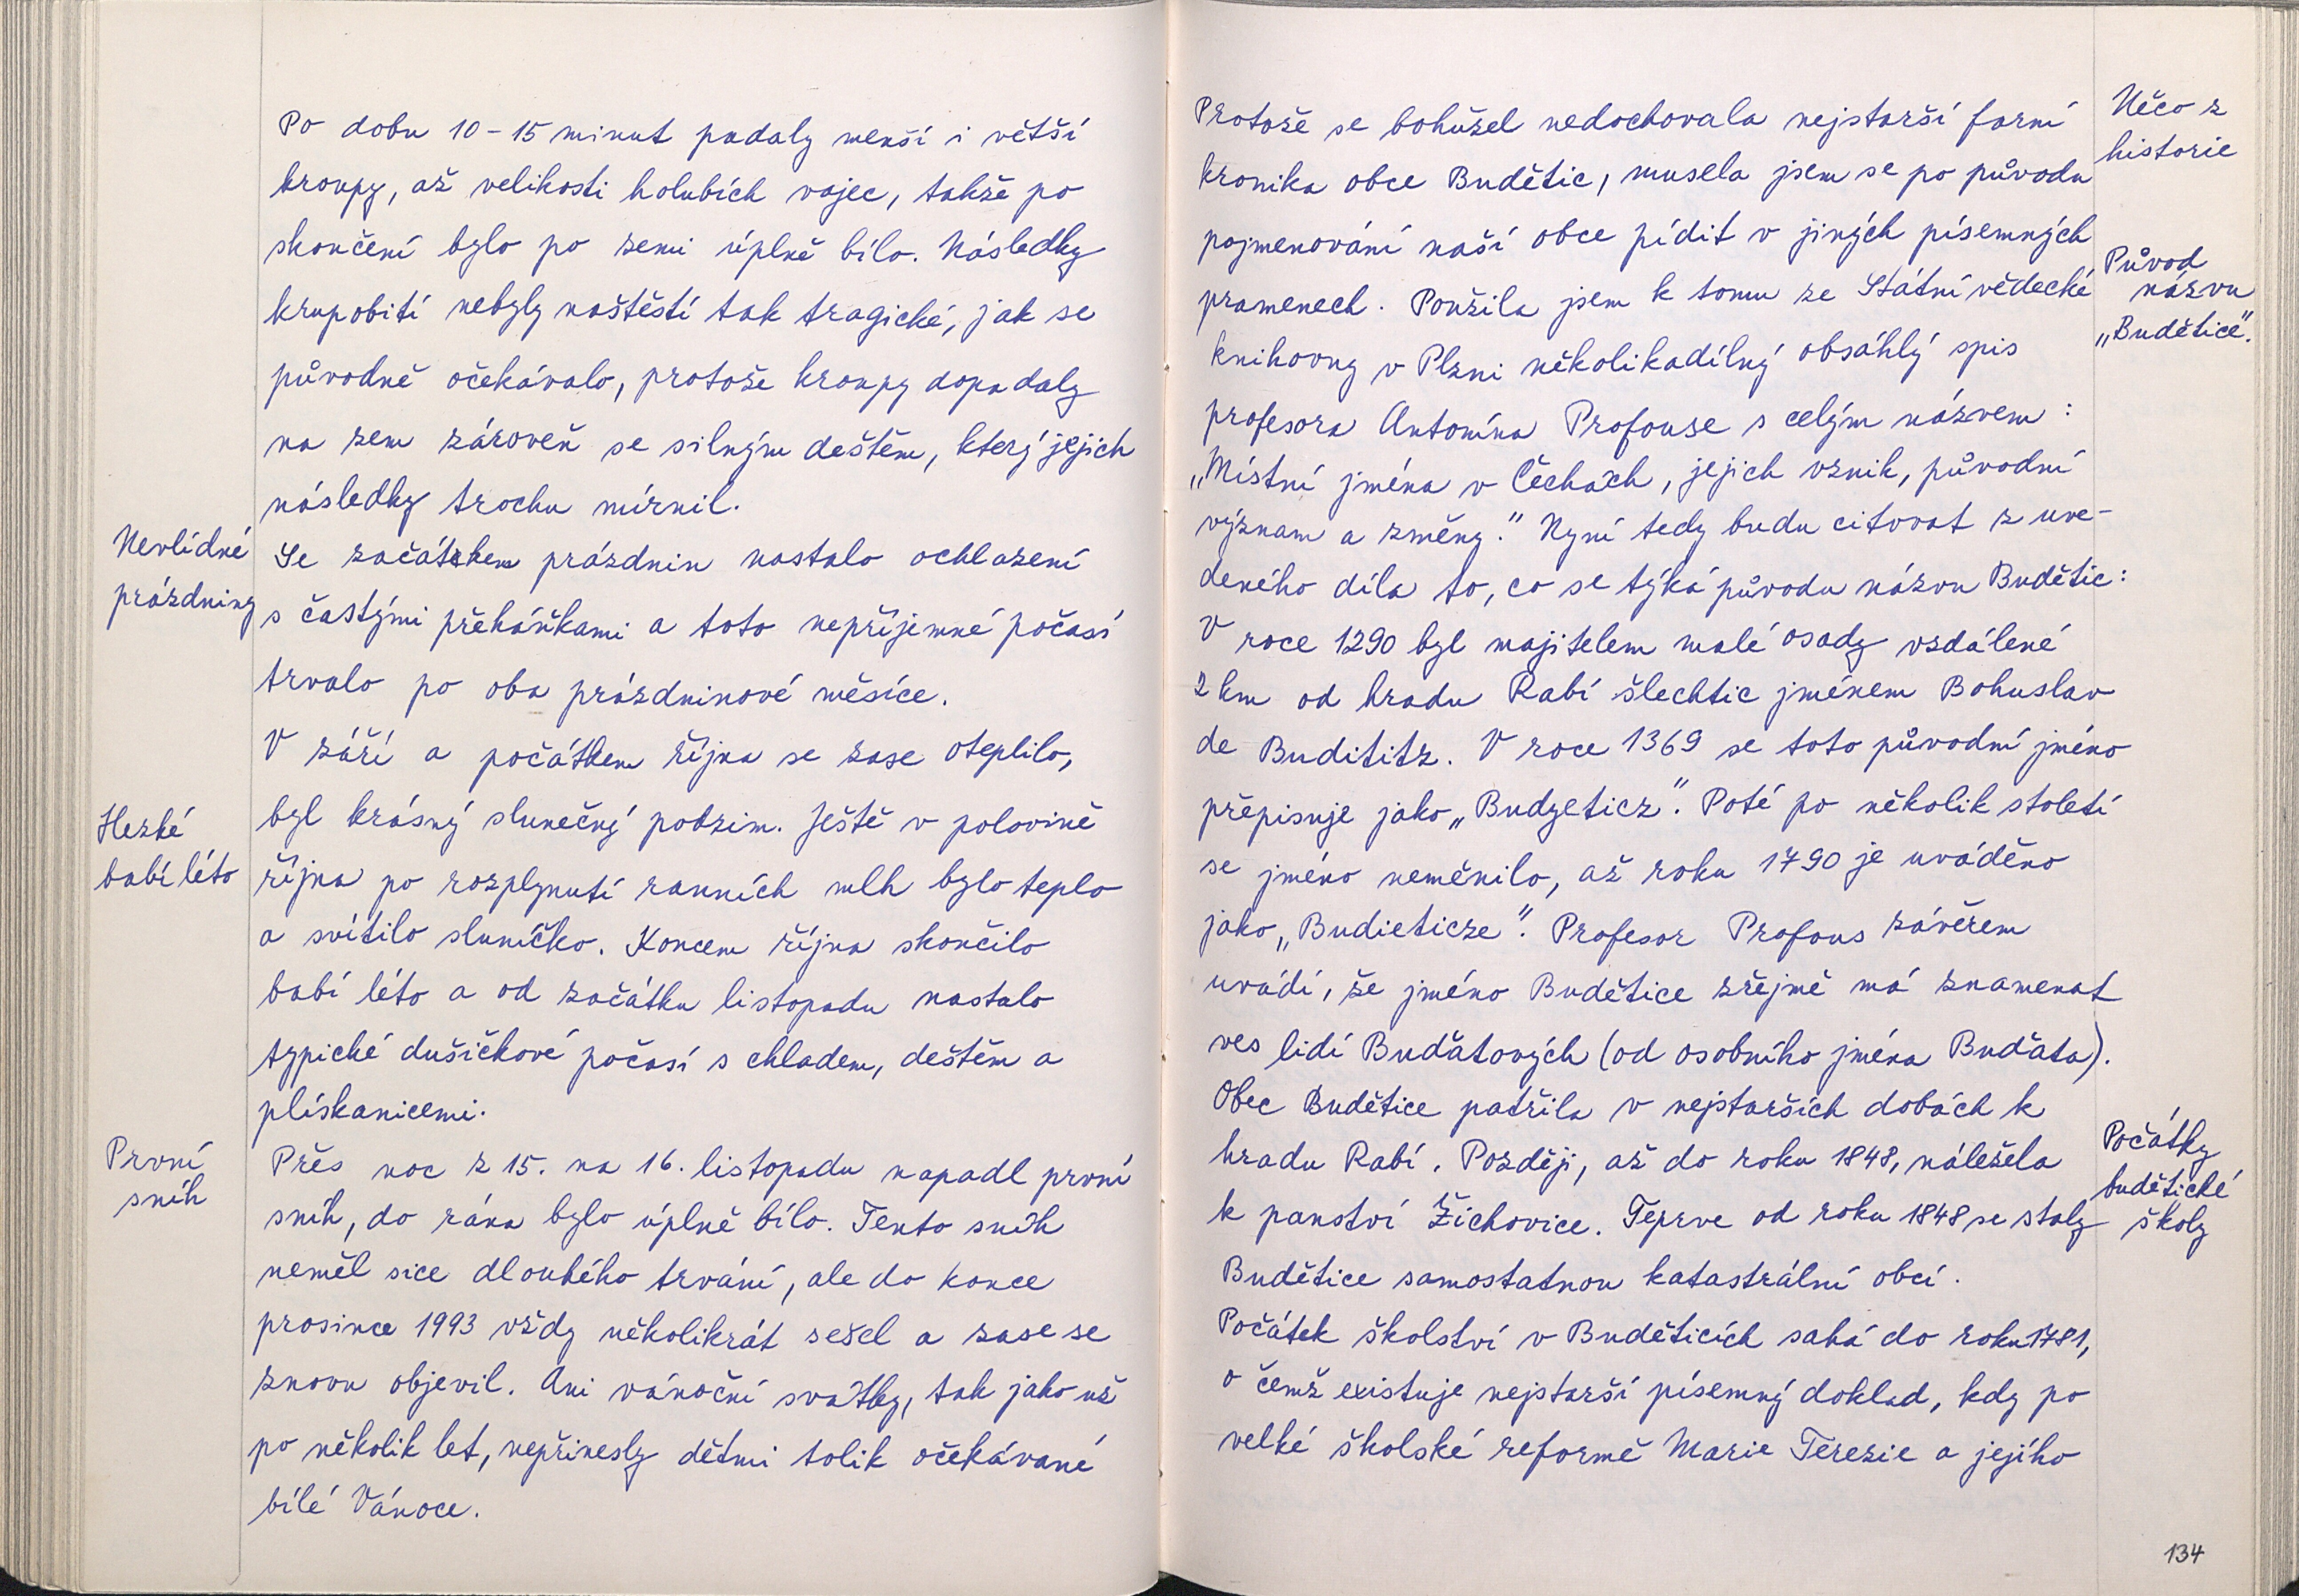 Po dobu 10 - 15 minut padaly menší i větší
kroupy, až velikosti holubích vajec, takže po
skončení bylo po zemi úplně bílo. Následky
krupobití nebyly naštěstí tak tragické, jak se
původně očekávalo, protože kroupy dopadaly
na zem zároveň se silným deštěm, který jejich
následky trochu mírnil.
Nevlídné
prázdniny
Se začátkem prázdnin nastalo ochlazení
s častými přeháňkami a toto nepříjemné počasí
trvalo po oba prázdninové měsíce.
V září a počátkem října se zase oteplilo,
Hezké
babí léto
byl krásný slunečný podzim. Ještě v polovině
října po rozplynutí ranních mlh bylo teplo
a svítilo sluníčko. Koncem října skončilo
babí léto a od začátku listopadu nastalo
typické dušičkové počasí s chladem, deštěm a
plískanicemi.
První
sníh
Přes noc z 15. na 16. listopadu napadl první
sníh, do rána bylo úplně bílo. Tento sníh
neměl sice dlouhého trvání, ale do konce
prosince 1993 vždy několikrát sešel a zase se
znovu objevil. Ani vánoční svátky, tak jako už
po několik let, nepřinesly dětmi tolik očekávané
bílé Vánoce.
Něco z
historie
Protože se bohužel nedochovala nejstarší farní
kronika obce Budětic, musela jsem se po původu
pojmenování naší obce pídit v jiných písemných
Původ
názvu
„Budětice“.
pramenech. Použila jsem k tomu ze Státní vědecké
knihovny v Plzni několikadílný obsáhlý spis
profesora Antonína Profouse s celým názvem :
„Místní jména v Čechách, jejich vznik, původní
význam a změny.“ Nyní tedy budu citovat z uve-
deného díla to, co se týká původu názvu Budětic:
V roce 1290 byl majitelem malé osady vzdálené
2 km od hradu Rabí šlechtic jménem Bohuslav
de Budititz. V roce 1369 se toto původní jméno
přepisuje jako „Budyeticz“. Poté po několik století
se jméno neměnilo, až roku 1790 je uváděno
jako „Budieticze“. Profesor Profous závěrem
uvádí, že jméno Budětice zřejmě má znamenat
ves lidí Buďatových (od osobního jména Buďata).
Obec Budětice patřila v nejstarších dobách k
hradu Rabí. Později, až do roku 1848, náležela
k panství Žichovice. Teprve od roku 1848 se staly
Budětice samostatnou katastrální obcí.
Počátky
budětické
školy
Počátek školství v Buděticích sahá do roku 1781,
o čemž existuje nejstarší písemný doklad, kdy po
velké školské reformě Marie Terezie a jejího
134